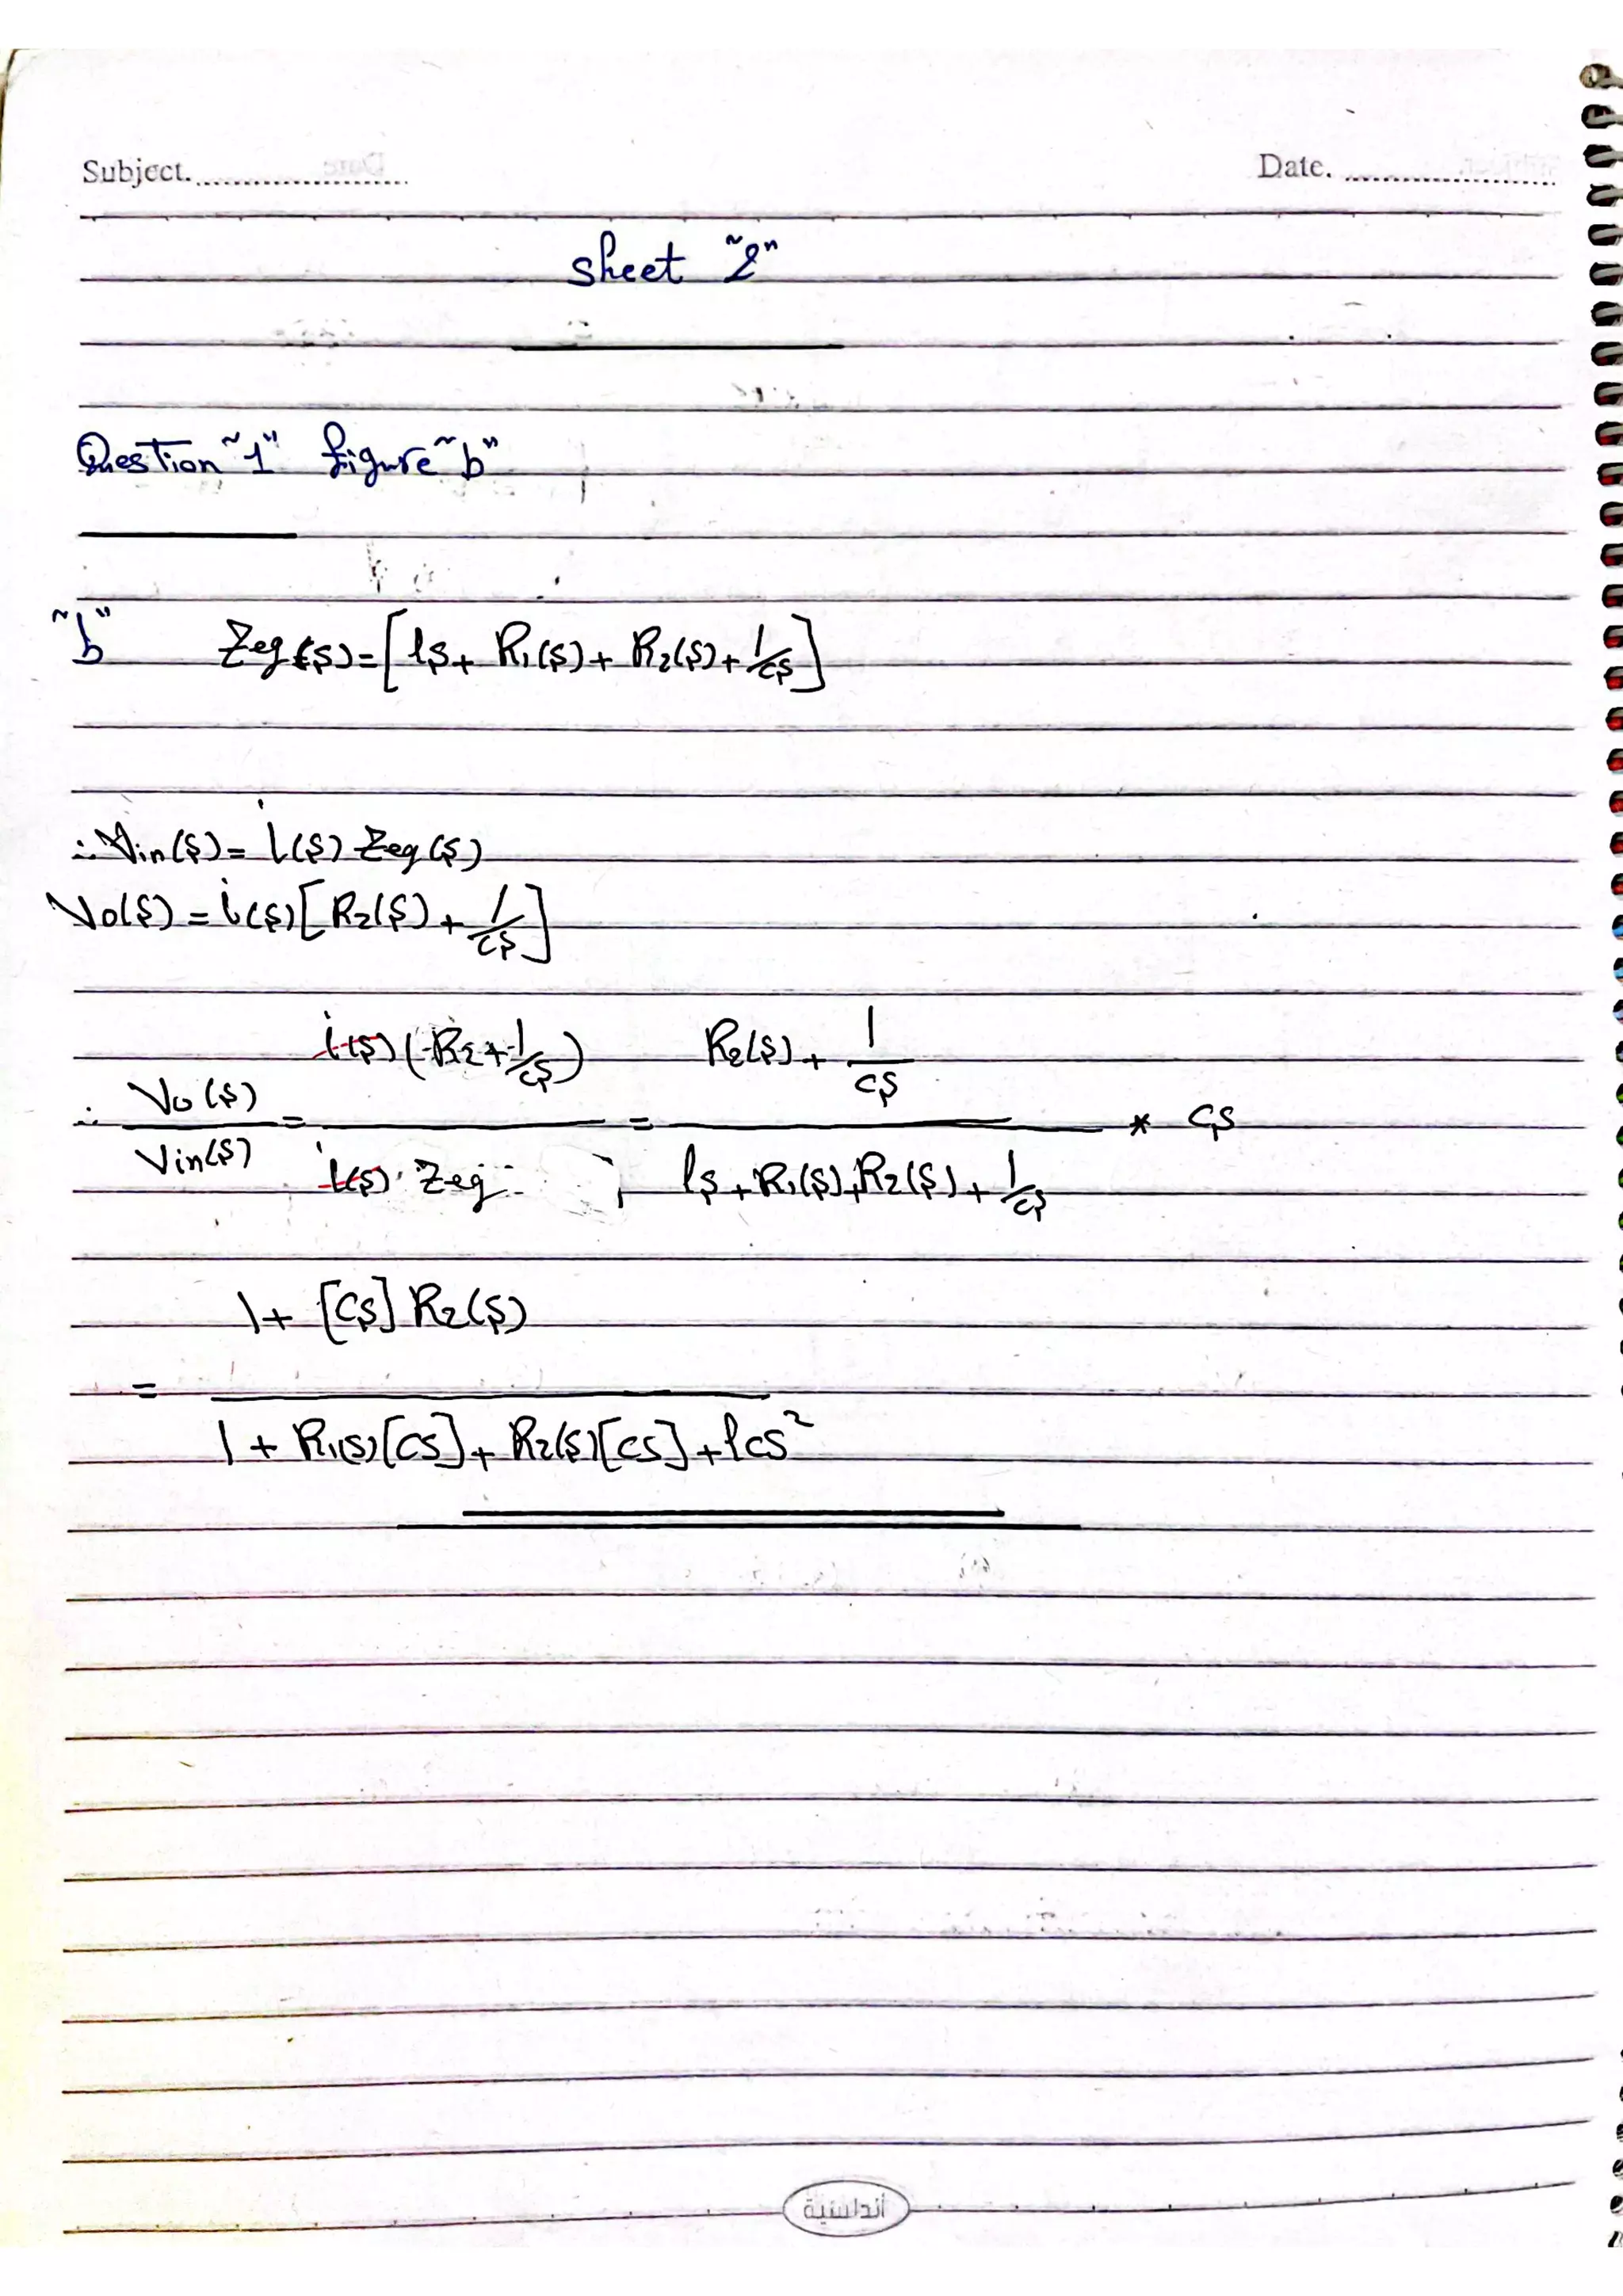 Subject. Date.
sheet "2"
Question "1" figure "b"
"b" Zeq(s) = [ls + R1(s) + R2(s) + 1/cs]
∴ Vin(s) = i(s) Zeq(s)
Vo(s) = i(s) [R2(s) + 1/cs]
∴ Vo(s)/Vin(s) = i(s)(R2 + 1/cs) / i(s) · Zeq = (R2(s) + 1/cs) / (ls + R1(s) + R2(s) + 1/cs) * cs
1 + [cs] R2(s)
=
1 + R1(s)[cs] + R2(s)[cs] + lcs²
أندلسية